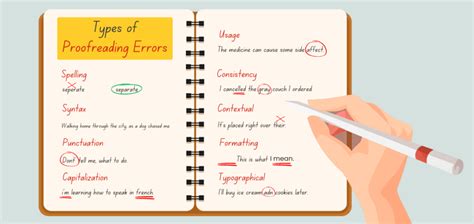 Types of
Proofreading Errors
Spelling
seperate separate
Syntax
Walking home through the city, as a dog chased me
Punctuation
Dont tell me, what to do
Capitalization
i'm learning how to speak in french.
Usage
The medicine can cause some side affect
Consistency
I cancelled the gray couch I ordered
Contextual
It's placed right over their
Formatting
This is what I mean.
Typographical
I'll buy ice cream adn cookies later.